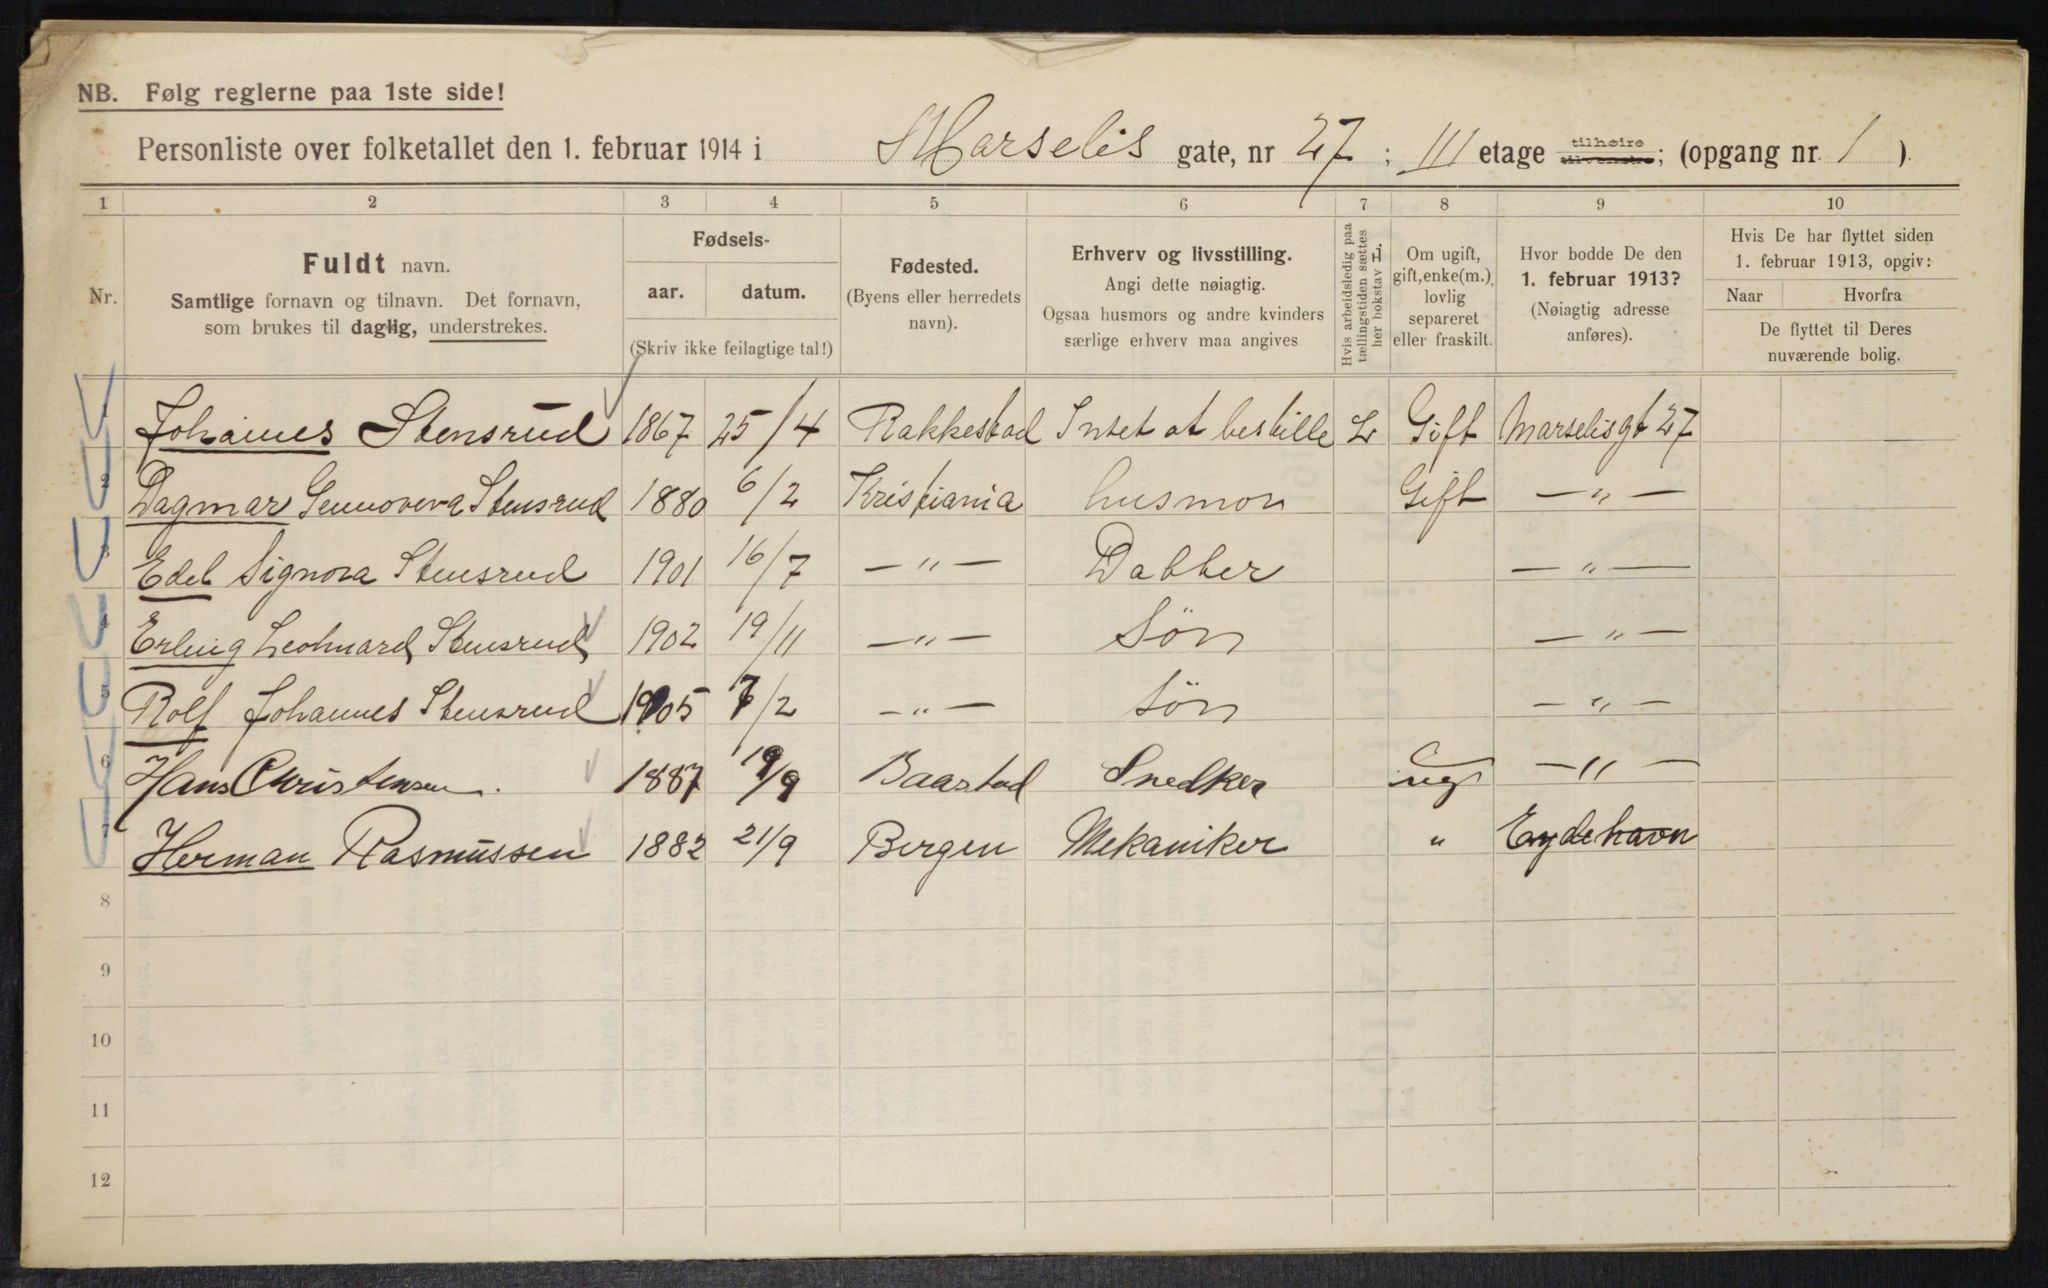 NB. Følg reglerne paa 1ste side!
Personliste over folketallet den 1. februar 1914 i Marselis gate, nr 27; III etage tilhøire tilvenstre; (opgang nr. 1).
1 2 3 4 5 6 7 8 9 10
Nr.
Fuldt navn.
Samtlige fornavn og tilnavn. Det fornavn,
som brukes til daglig, understrekes.
Fødsels-
aar. datum.
(Skriv ikke feilagtige tal!)
Fødested.
(Byens eller herredets
navn).
Erhverv og livsstilling.
Angi dette nøiagtig.
Ogsaa husmors og andre kvinders
særlige erhverv maa angives
Hvis arbeidsledig paa
tællingstiden sættes
her bokstav L.
Om ugift,
gift, enke(m.),
lovlig
separeret
eller fraskilt.
Hvor bodde De den
1. februar 1913?
(Nøiagtig adresse
anføres).
Hvis De har flyttet siden
1. februar 1913, opgiv:
Naar Hvorfra
De flyttet til Deres
nuværende bolig.
1 Johannes Stensrud 1867 25/4 Rakkestad Intet at bestille L Gift Marselisgt 27
2 Dagmar Gennoveva Stensrud 1880 6/2 Kristiania husmor Gift —〃—
3 Edel Signora Stensrud 1901 16/7 —〃— Datter —〃—
4 Erling Leohnard Stensrud 1902 19/11 —〃— Søn —〃—
5 Rolf Johannes Stensrud 1905 7/2 —〃— Søn —〃—
6 Hans Christensen. 1887 19/9 Baastad Snedker ug —〃—
7 Herman Rasmussen 1882 21/9 Bergen Mekaniker 〃 Eydehavn
8
9
10
11
12